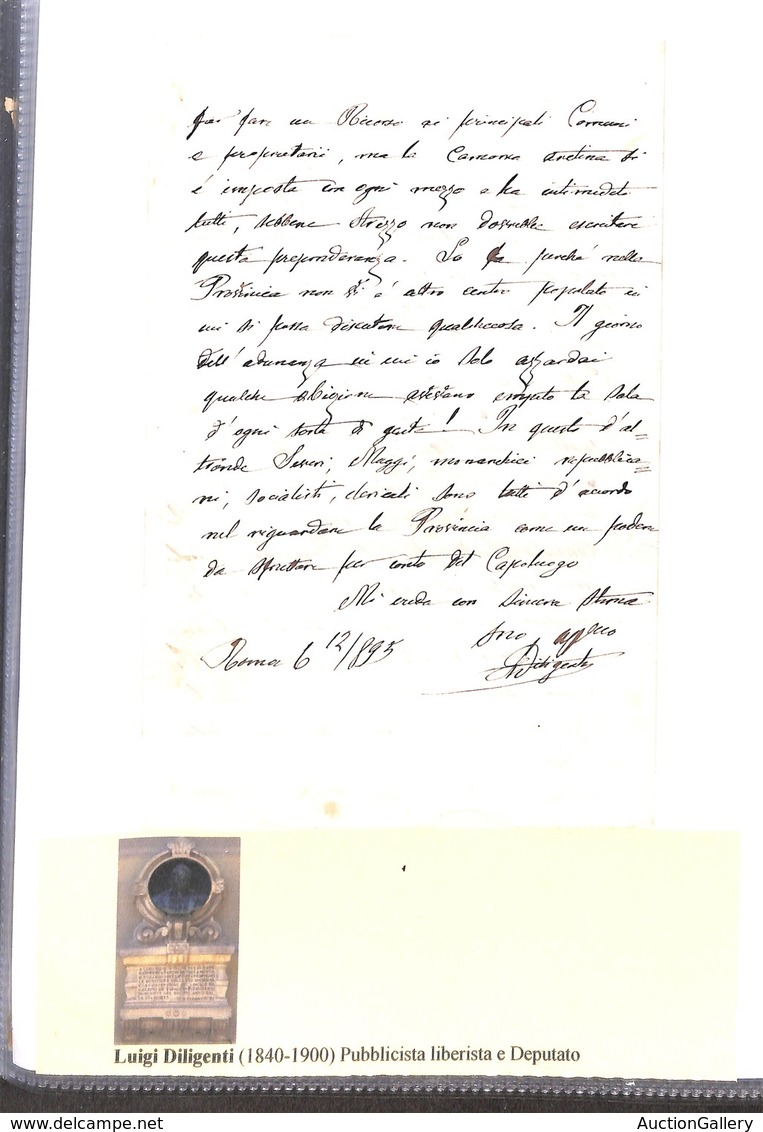 far fare un Ricorso ai principali Comuni
e proprietarii, ma la Camorra aretina si
è imposta con ogni mezzo e ha intimidito
tutti, sebbene Arezzo non dovrebbe esercitare
questa preponderanza. perché nella
Provincia non vi è altro centro popolato in
cui si possa discutere qualchecosa. Il giorno
dell'adunanza in cui io solo azzardai
qualche obiezione avevano empito la sala
d'ogni sorta di gente! In questo d'al=
tronde Severi, Maggi, monarchici repubblica=
ni, socialisti, clericali sono tutti d'accordo
nel riguardare la Provincia come un podere
da sfruttare per conto del Capoluogo
Mi creda con sincera stima
Suo
Roma 6 12/895
Diligenti
Luigi Diligenti (1840-1900) Pubblicista liberista e Deputato
www.delcampe.net
AuctionGallery